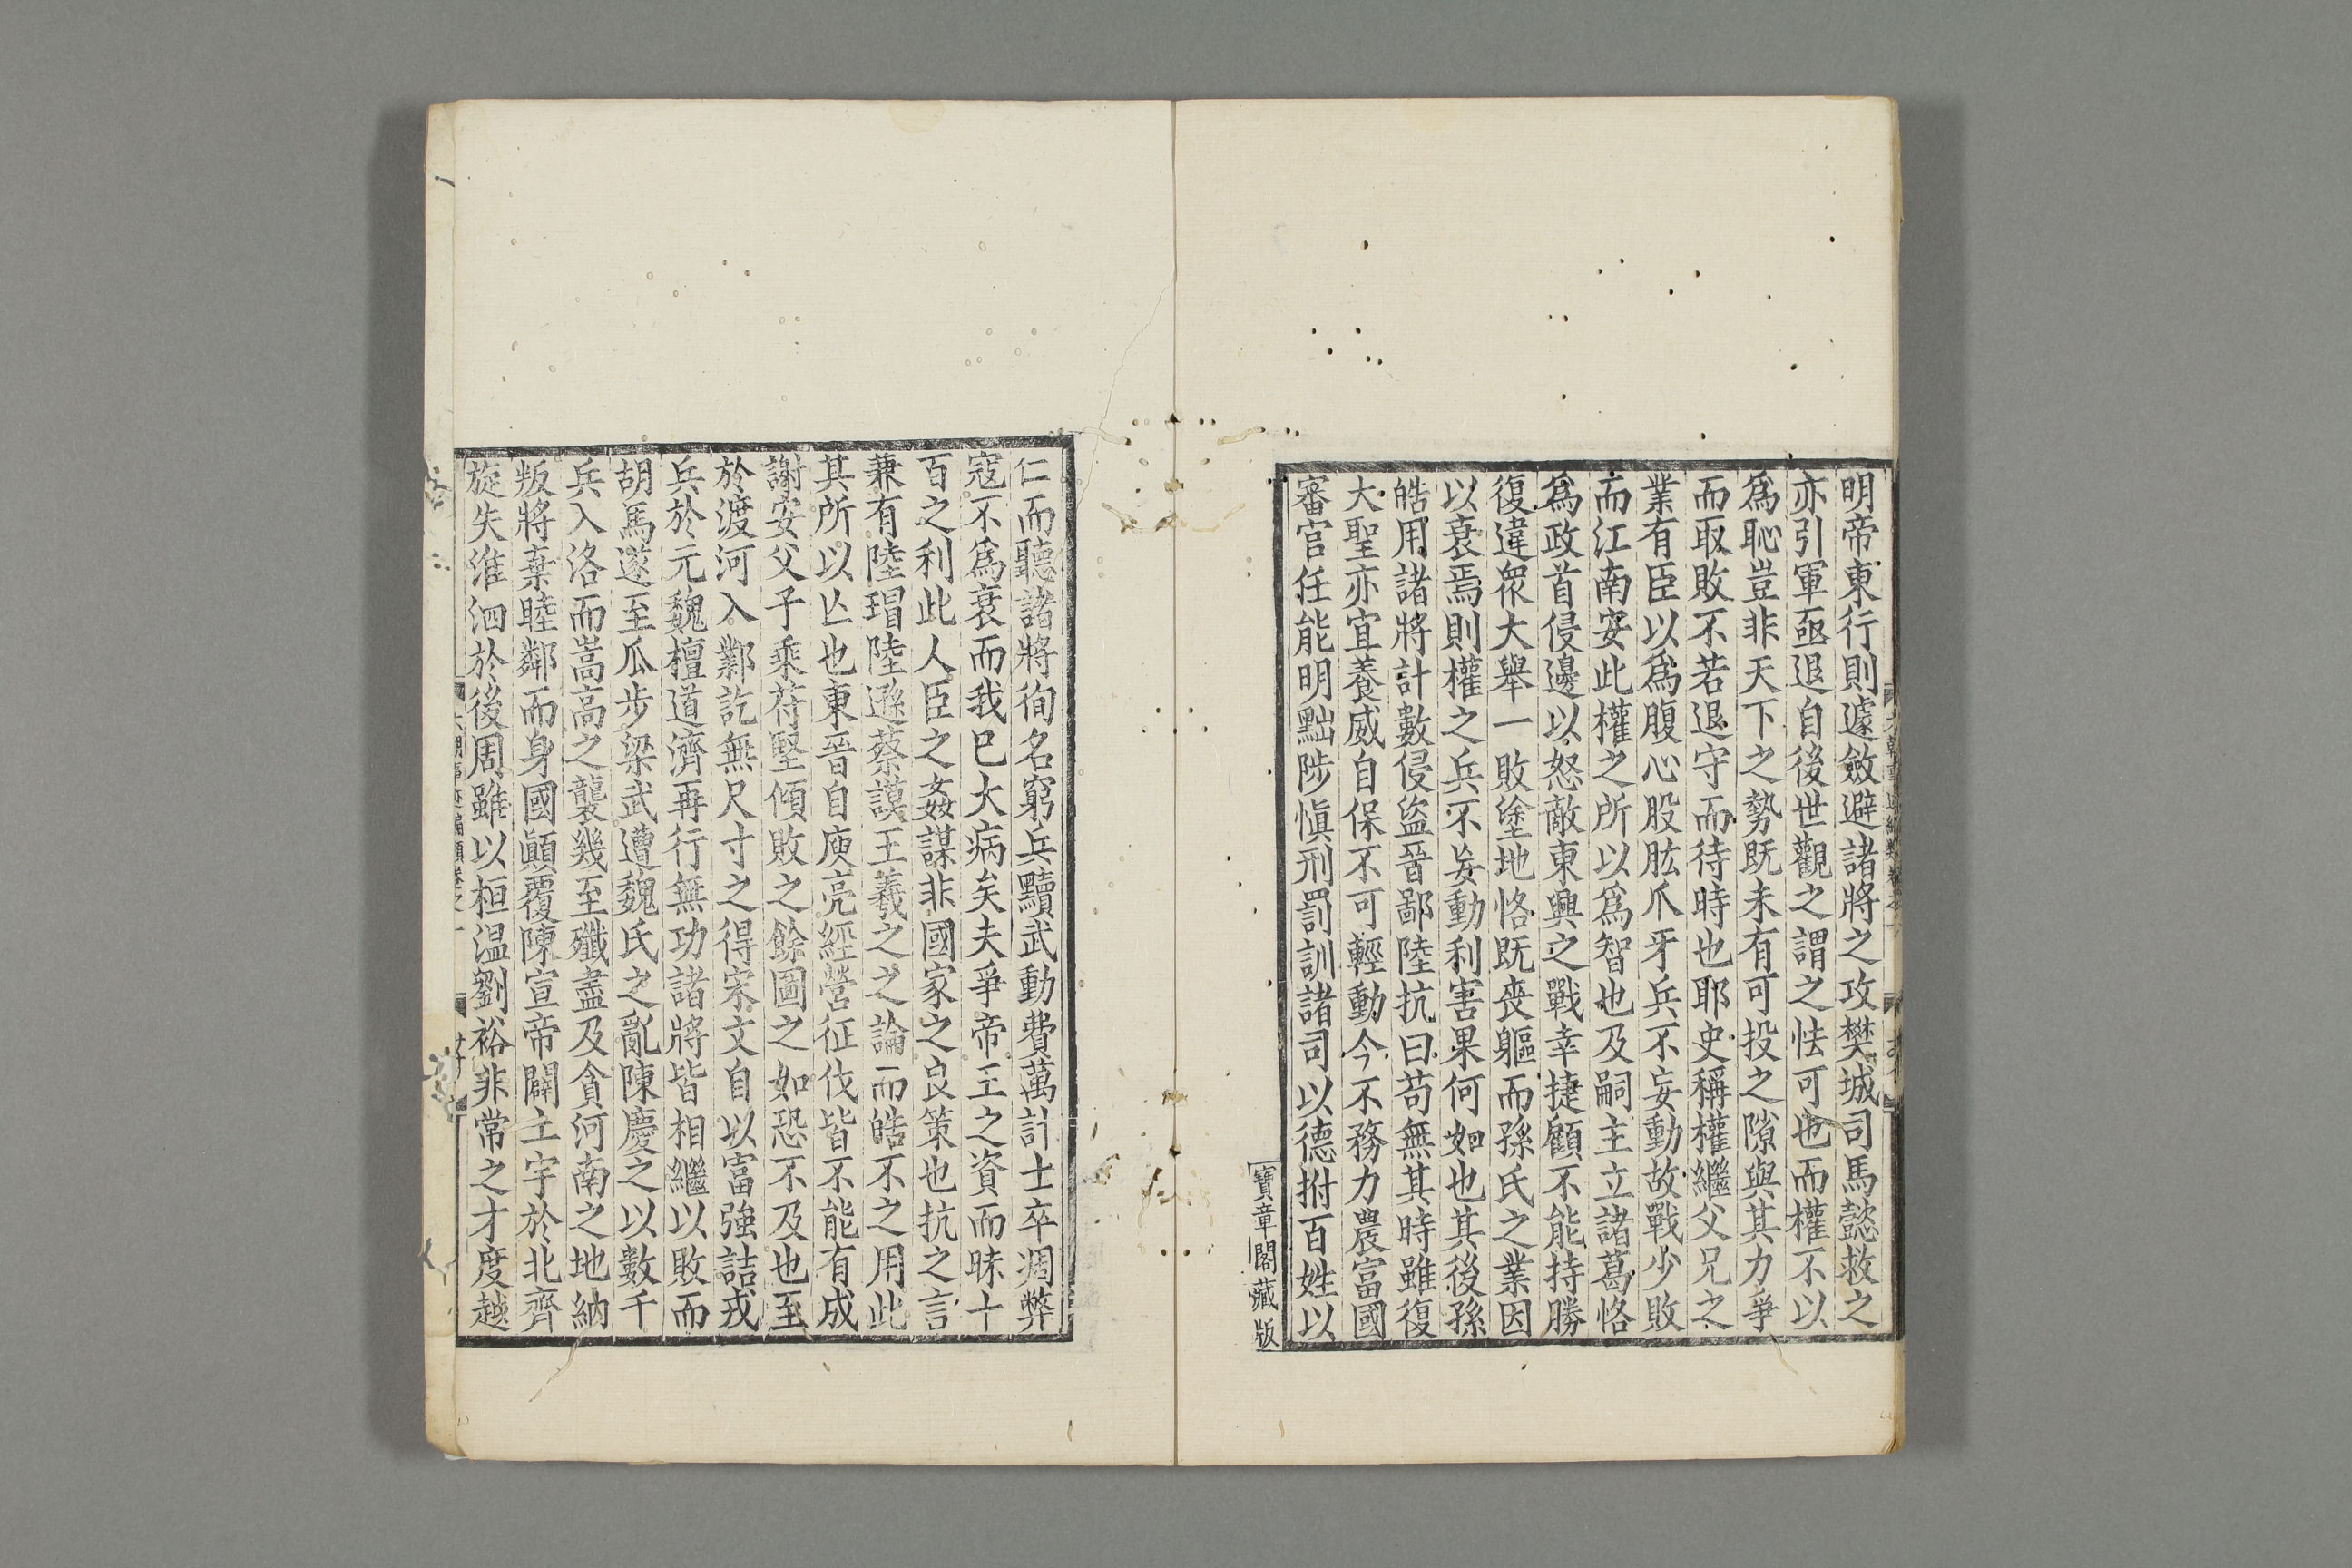 明帝東行則遽斂避諸將之攻樊城司馬懿救之
亦引軍亟退自後世觀之謂之怯可也而權不以
爲恥豈非天下之勢既未有可投之隙與其力爭
而取敗不若退守而待時也耶史稱權繼父兄之
業有臣以爲腹心股肱爪牙兵不妄動故戰少敗
而江南安此權之所以爲智也及嗣主立諸葛恪
爲政首侵邊以怒敵東興之戰幸捷顧不能持勝
復違衆大舉一敗塗地恪既喪軀而孫氏之業因
以衰焉則權之兵不妄動利害果何如也其後孫
皓用諸將計數侵盜晉鄙陸抗曰苟無其時雖復
大聖亦宜養威自保不可輕動今不務力農富國
審官任能明黜陟愼刑罰訓諸司以德拊百姓以
寶章閣藏版
仁而聽諸將徇名窮兵黷武動費萬計士卒凋弊
寇不爲衰而我已大病矣夫爭帝王之資而昧十
百之利此人臣之姦謀非國家之良策也抗之言
兼有陸瑁陸遜蔡謨王羲之之論而皓不之用此
其所以亾也東晉自庾亮經營征伐皆不能有成
謝安父子乘苻堅傾敗之餘圖之如恐不及也至
於渡河入鄴訖無尺寸之得宋文自以富強詰戎
兵於元魏檀道濟再行無功諸將皆相繼以敗而
胡馬遂至瓜步梁武遭魏氏之亂陳慶之以數千
兵入洛而嵩高之襲幾至殲盡及貪河南之地納
叛將棄睦鄰而身國顚覆陳宣帝闢土宇於北齊
旋失淮泗於後周雖以桓温劉裕非常之才度越